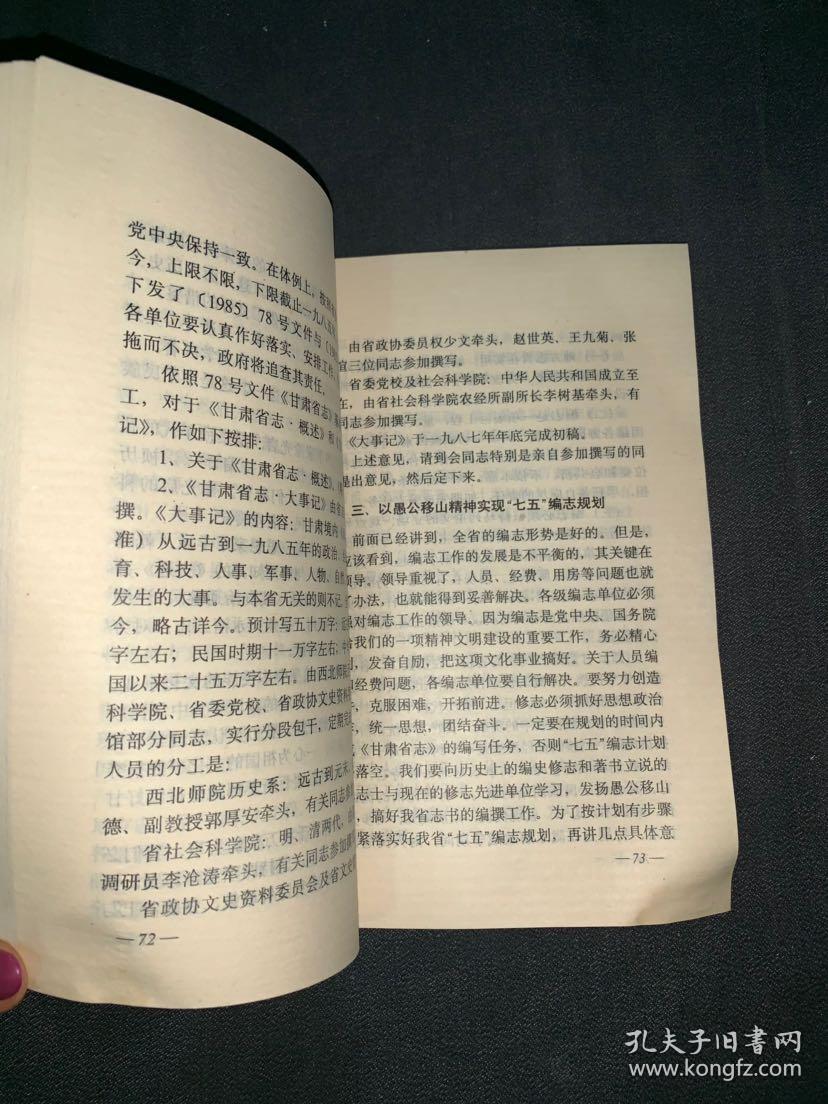 党中央保持一致。在体例上，按照
今，上限不限，下限截止一九八五
下发了〔1985〕78号文件与
各单位要认真作好落实、安排工作，
拖而不决，政府将追查其责任，
依照78号文件《甘肃省志》
工，对于《甘肃省志·概述》和
记》，作如下按排：
1、关于《甘肃省志·概述》，
2、《甘肃省志·大事记》由
撰。《大事记》的内容：甘肃境内
准）从远古到一九八五年的政治、
育、科技、人事、军事、人物、自
发生的大事。与本省无关的则不记
今，略古详今。预计写五十万字：
字左右；民国时期十一万字左右；
国以来二十五万字左右。由西北师
科学院、省委党校、省政协文史资料
馆部分同志，实行分段包干，定期
人员的分工是：
西北师院历史系：远古到元末，
德、副教授郭厚安牵头，有关同志
省社会科学院：明、清两代，由
调研员李沧涛牵头，有关同志参加
省政协文史资料委员会及省文史
—72—
由省政协委员权少文牵头，赵世英、王九菊、张
谊三位同志参加撰写。
省委党校及社会科学院：中华人民共和国成立至
在，由省社会科学院农经所副所长李树基牵头，有
同志参加撰写。
《大事记》于一九八七年年底完成初稿。
上述意见，请到会同志特别是亲自参加撰写的同
是出意见，然后定下来。
三、以愚公移山精神实现“七五”编志规划
前面已经讲到，全省的编志形势是好的。但是，
应该看到，编志工作的发展是不平衡的，其关键在
领导。领导重视了，人员、经费、用房等问题也就
了办法，也就能得到妥善解决。各级编志单位必须
对编志工作的领导。因为编志是党中央、国务院
给我们的一项精神文明建设的重要工作，务必精心
划，发奋自励，把这项文化事业搞好。关于人员编
和经费问题，各编志单位要自行解决。要努力创造
，克服困难，开拓前进。修志必须抓好思想政治
，统一思想，团结奋斗。一定要在规划的时间内
《甘肃省志》的编写任务，否则“七五”编志计划
落空。我们要向历史上的编史修志和著书立说的
志士与现在的修志先进单位学习，发扬愚公移山
，搞好我省志书的编撰工作。为了按计划有步骤
紧落实好我省“七五”编志规划，再讲几点具体意
—73—
孔夫子旧书网
www.kongfz.com